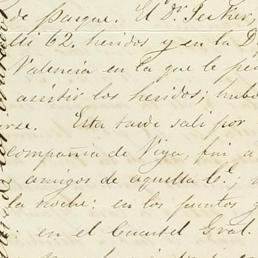 de parque. El Dr.
62. heridos y en la D
Valencia en la que le pe
asistir los heridos; hubo
rse. Esta tarde salí por
compañia de Vega, fui a
amigos de aquella
la noche: en los puntos y
: en el Cuartel Gral.